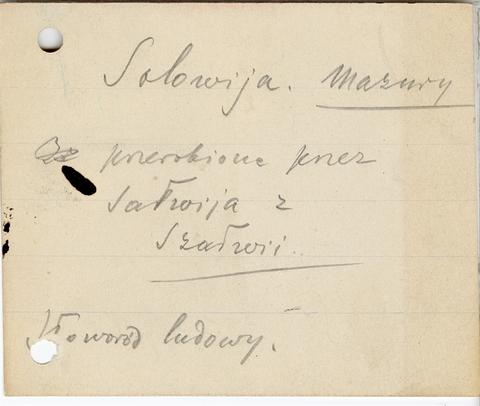 Solowija. Mazury
przerobione przez
Satwija z
Szatwii.
Słoworód ludowy.